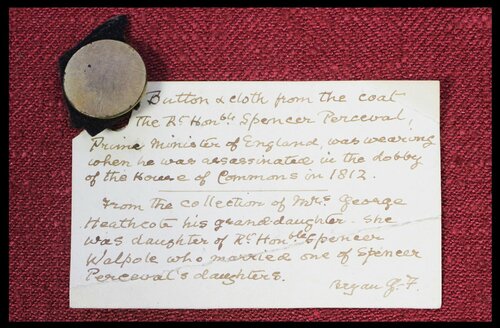 Button & cloth from the coat
the Rt Honble Spencer Perceval,
Prime Minister of England, was wearing
when he was assassinated in the lobby
of the House of Commons in 1812.
From the collection of Mrs George
Heathcote his grand-daughter. She
was daughter of Rt Honble Spencer
Walpole who married one of Spencer
Perceval's daughters.